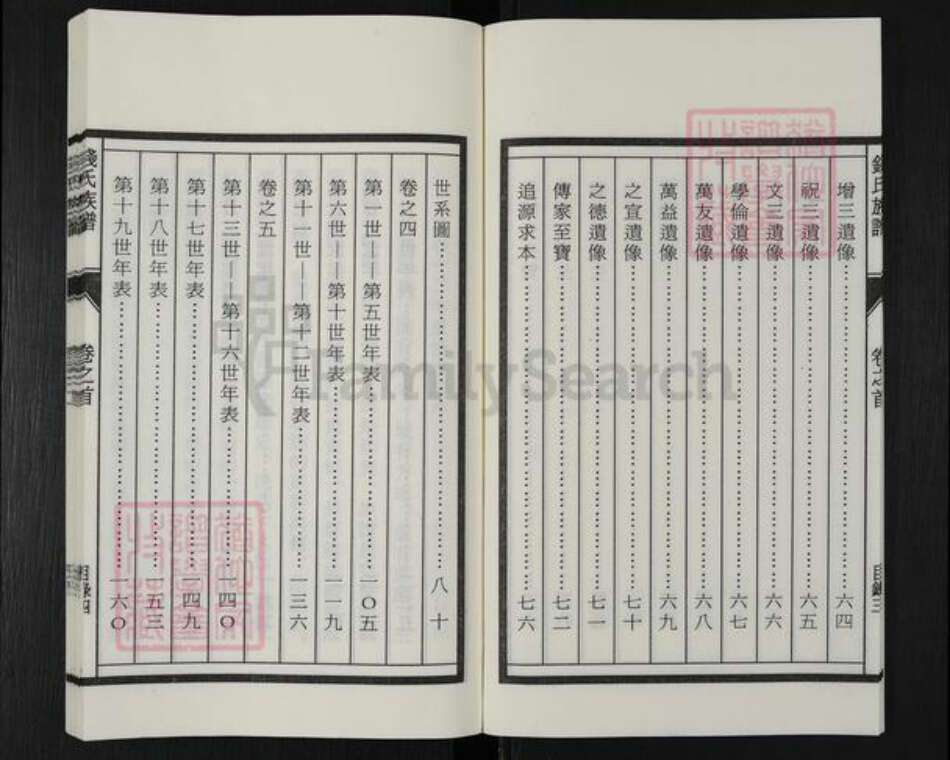 錢氏族譜
卷之首
目錄三
增三遺像……六四
祝三遺像……六五
文三遺像……六六
學倫遺像……六七
萬友遺像……六八
萬益遺像……六九
之宣遺像……七十
之德遺像……七一
傳家至寶……七二
追源求本……七六
世系圖……八十
卷之四
第一世——第五世年表……一〇五
第六世——第十世年表……一一九
第十一世——第十二世年表……一三六
卷之五
第十三世——第十六世年表……一四〇
第十七世年表……一四九
第十八世年表……一五三
第十九世年表……一六〇
錢氏族譜
卷之首
目錄四
FamilySearch